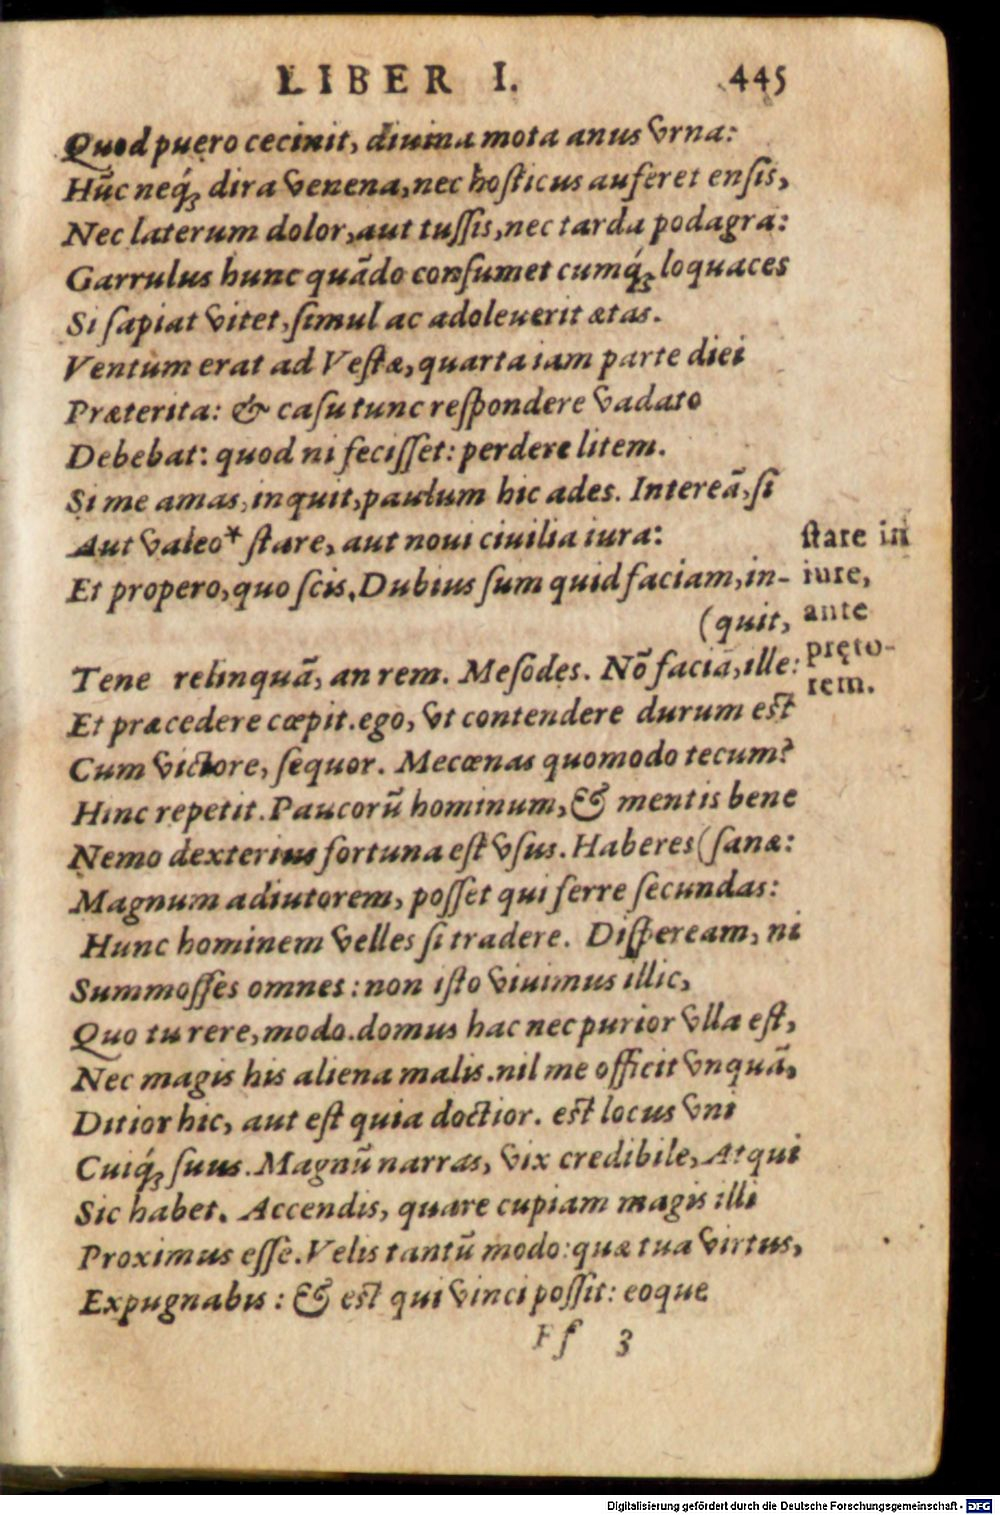 LIBER I. 445
Quod puero cecinit, diuina mota anus vrna:
Hūc neq́ꝫ dira venena, nec hosticus auferet ensis,
Nec laterum dolor, aut tussis, nec tarda podagra:
Garrulus hunc quādo consumet cumq́ꝫ loquaces
Si sapiat vitet, simul ac adoleuerit ætas.
Ventum erat ad Vestæ, quarta iam parte diei
Præterita: & casu tunc respondere vadato
Debebat: quod ni fecisset: perdere litem.
Si me amas, inquit, paulum hic ades. Intereā, si
Aut valeo* stare, aut noui ciuilia iura:
Et propero, quo scis. Dubius sum quid faciam, in-
(quit,
stare in
iure,
ante
pręto-
rem.
Tene relinquā, an rem. Me sodes. Nō faciā, ille:
Et præcedere cœpit. ego, vt contendere durum est
Cum victore, sequor. Mecœnas quomodo tecum?
Hinc repetit. Paucorū hominum, & mentis bene
Nemo dexterius fortuna est vsus. Haberes (sanæ:
Magnum adiutorem, posset qui ferre secundas:
Hunc hominem velles si tradere. Dispeream, ni
Summosses omnes: non isto viuimus illic,
Quo tu rere, modo. domus hac nec purior vlla est,
Nec magis his aliena malis. nil me officit vnquā,
Ditior hic, aut est quia doctior. est locus vni
Cuiq́ꝫ suus. Magnū narras, vix credibile, Atqui
Sic habet. Accendis, quare cupiam magis illi
Proximus esse. Velis tantū modo: quæ tua virtus,
Expugnabis: & est qui vinci possit: eoque
Ff 3
Digitalisierung gefördert durch die Deutsche Forschungsgemeinschaft - DFG